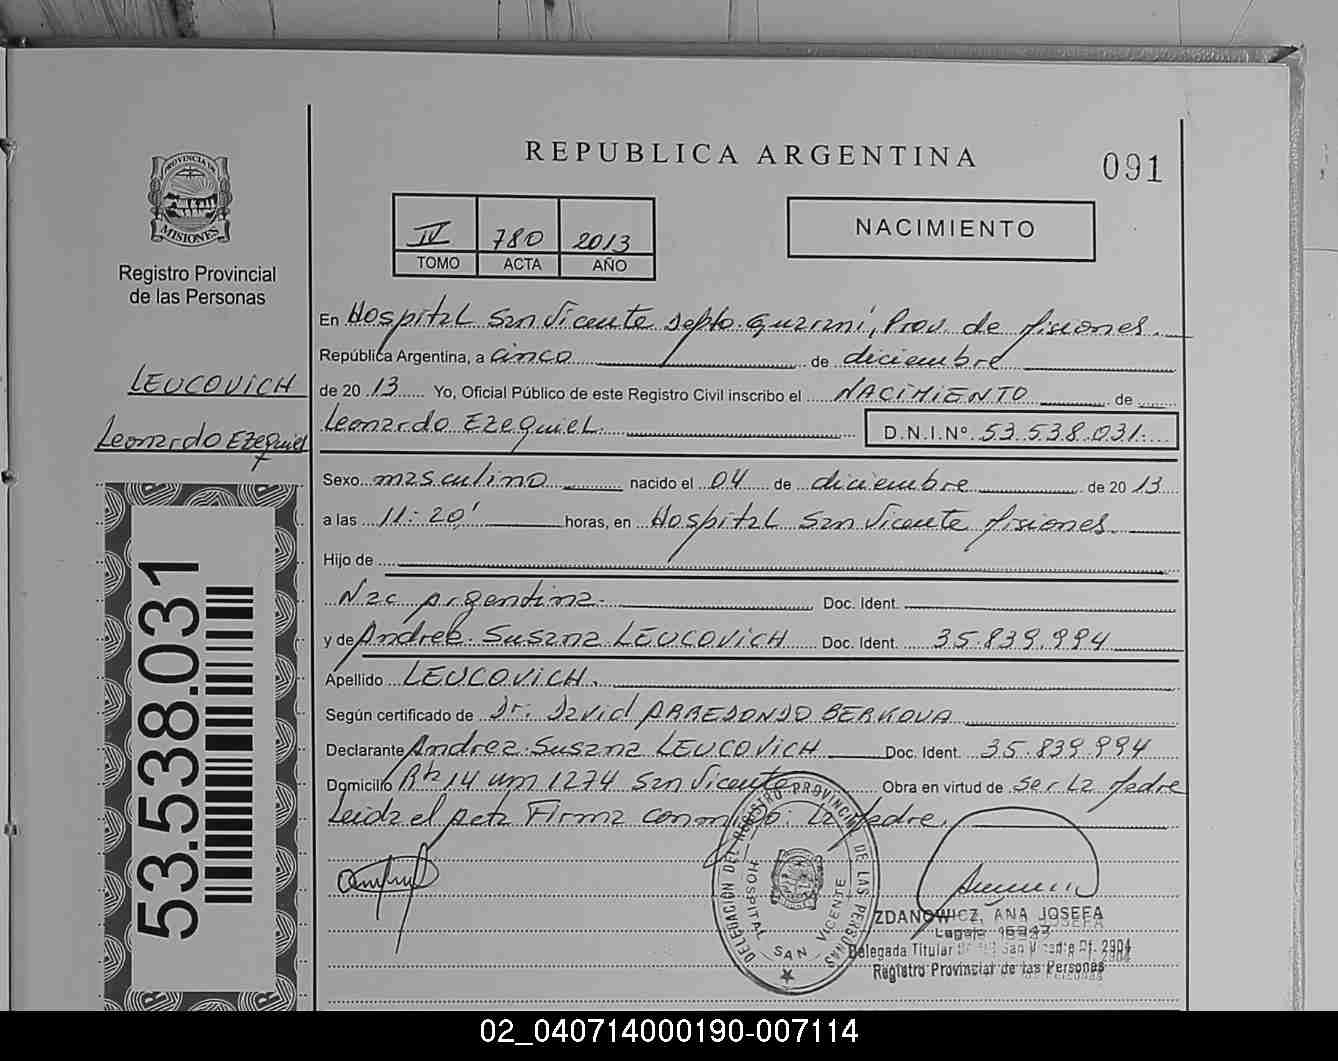 REPUBLICA ARGENTINA
091
PROVINCIA DE
MISIONES
Registro Provincial
de las Personas
IV 780 2013
TOMO ACTA AÑO
NACIMIENTO
En Hospital San Vicente Depto. Guaraní, Prov. de Misiones.
República Argentina, a cinco de diciembre
LEUCOVICH
de 20 13 Yo, Oficial Público de este Registro Civil inscribo el NACIMIENTO de
Leonardo Ezequiel
Leonardo EZEQUIEL. D.N.I.Nº 53.538.031.
Sexo masculino nacido el 04 de diciembre de 20 13
a las 11:20' horas, en Hospital San Vicente Misiones.
Hijo de
Nac Argentina. Doc. Ident.
y de Andrea Susana LEUCOVICH Doc. Ident. 35.839.994
Apellido LEUCOVICH.
Según certificado de Dr. David ARREDONDO BERKOVA
Declarante Andrea Susana LEUCOVICH Doc. Ident. 35.839.994
Domicilio 14 1274 San Vicente Obra en virtud de ser La Madre
Leida el Acta Firma conmigo: La Madre.
53.538.031
DELEGACION DEL REGISTRO PROVINCIAL DE LAS PERSONAS
HOSPITAL SAN VICENTE
ZDANOWICZ, ANA JOSEFA
Legajo
Delegada Titular San Vicente Of. 2904
Registro Provincial de las Personas
02_040714000190-007114